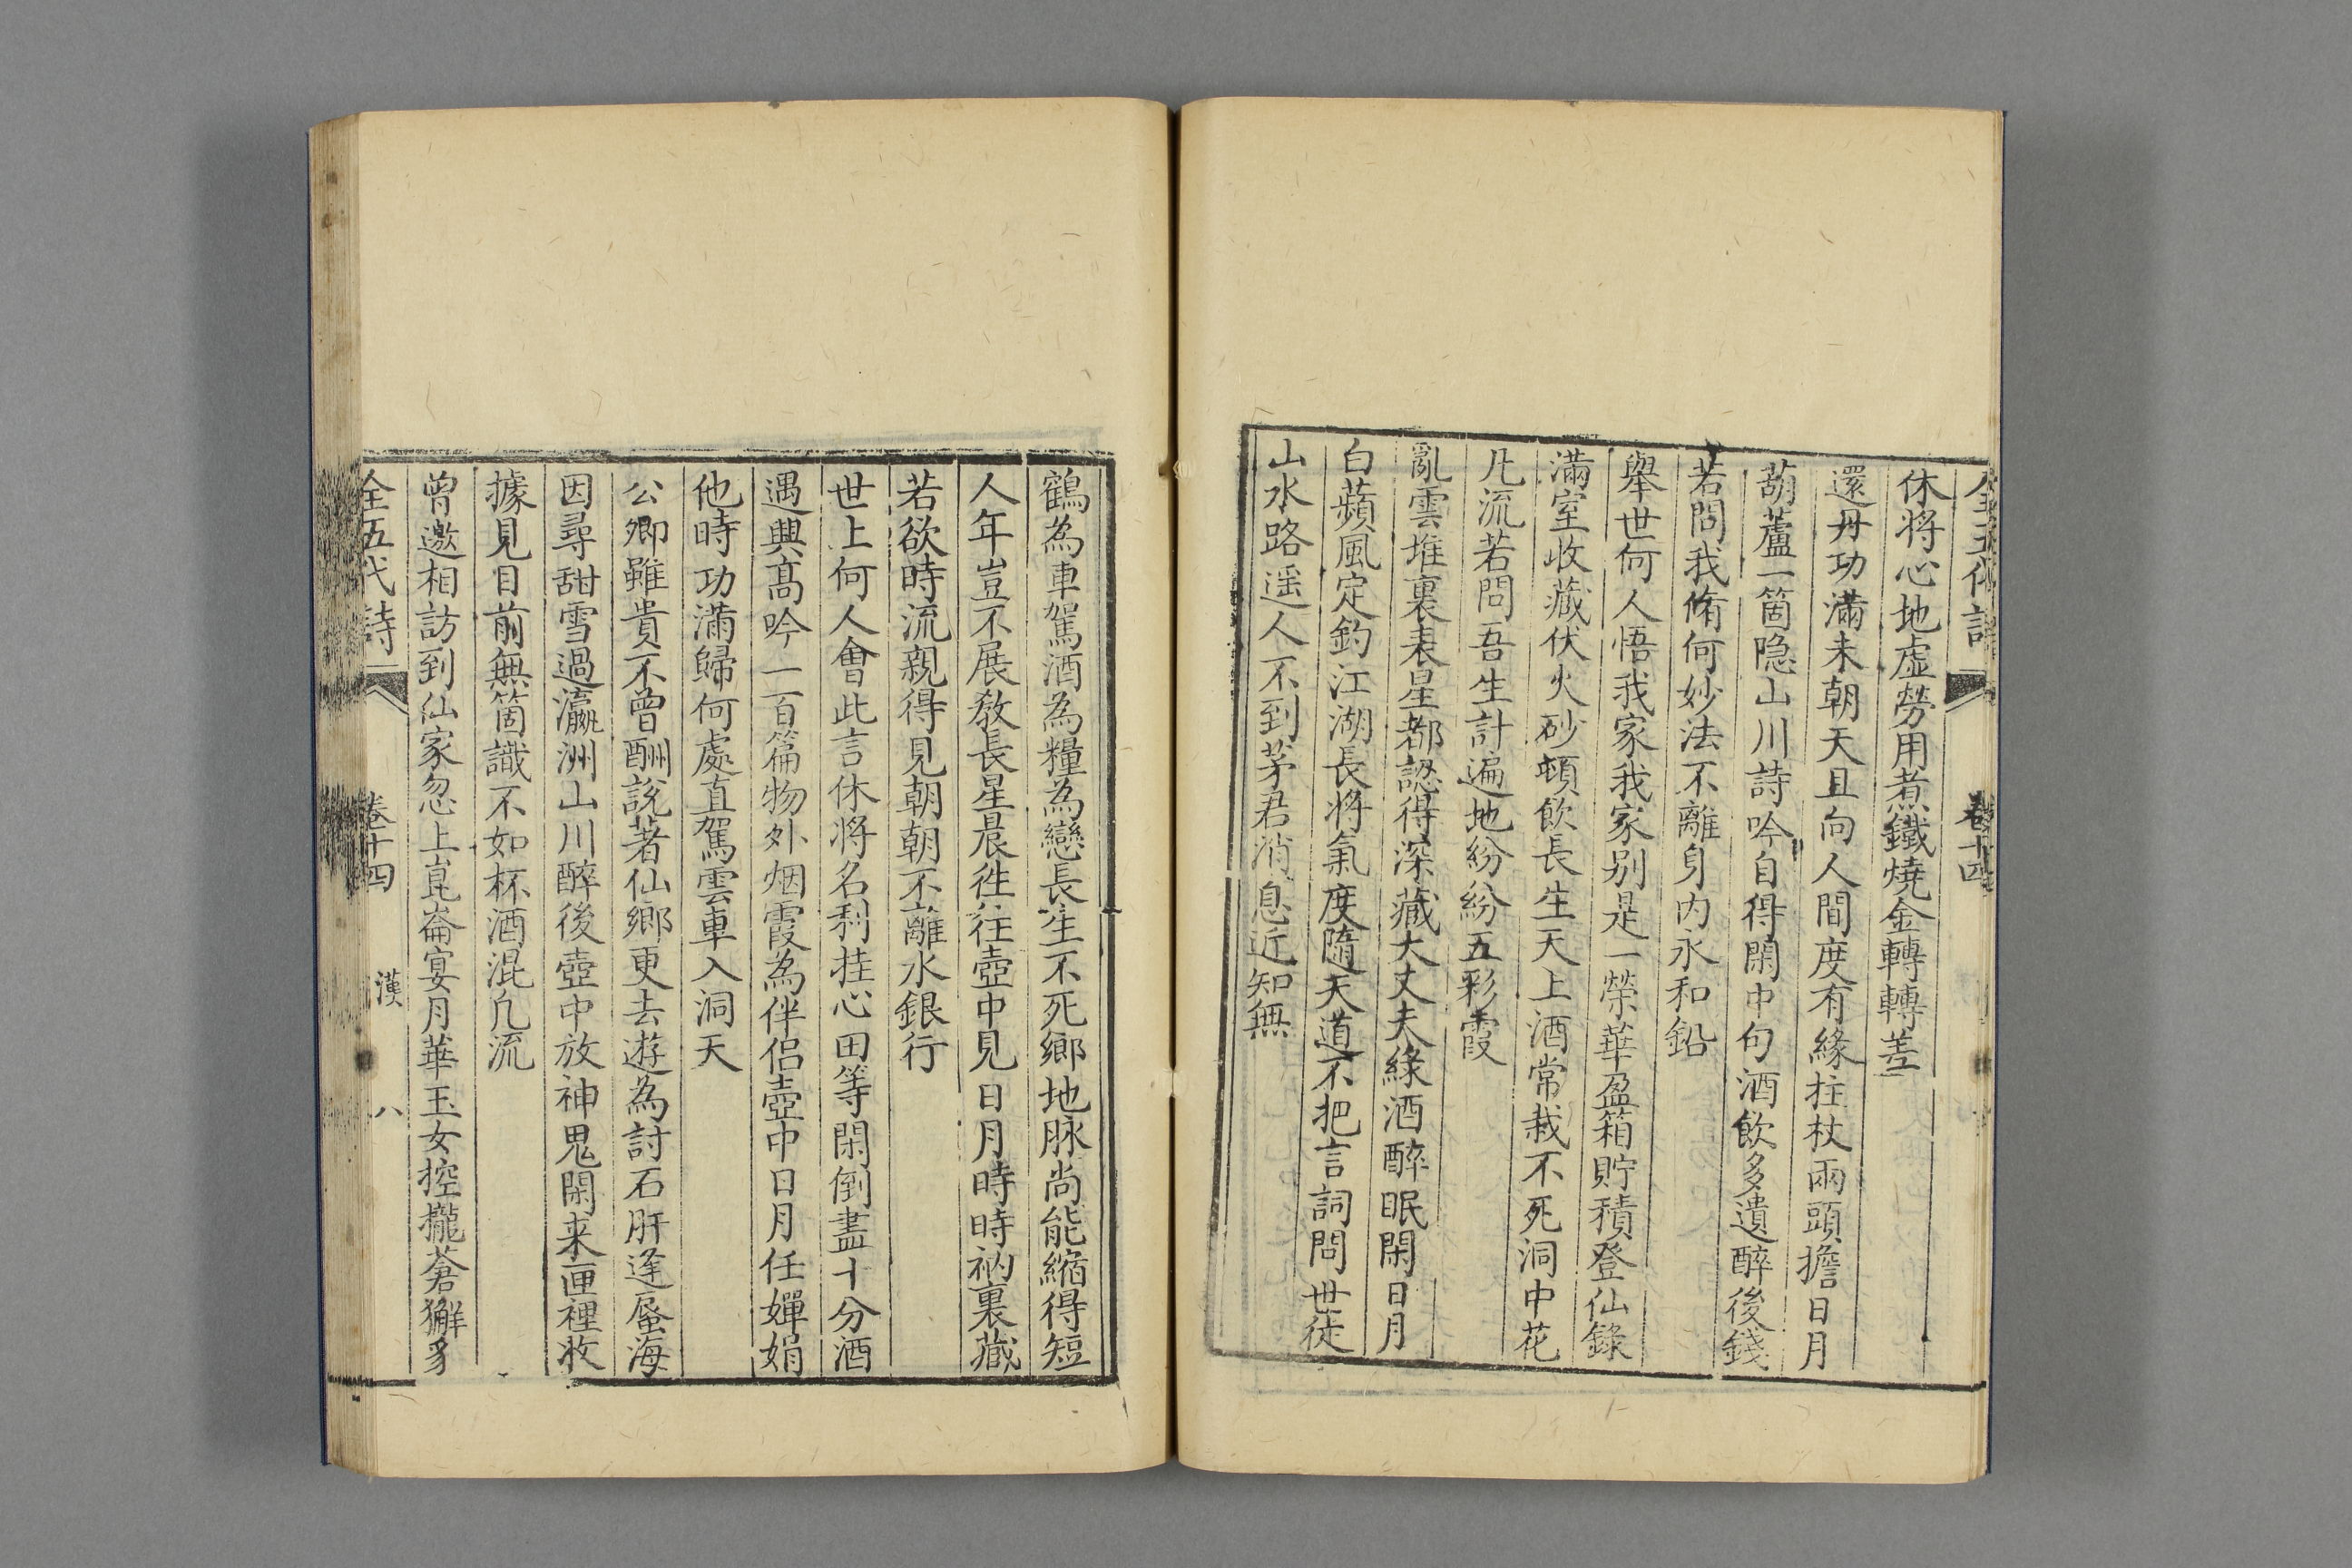 全五代詩 卷十四
休将心地虚勞用煮鐵燒金轉轉差
還丹功滿未朝天且向人間度有緣拄杖兩頭擔日月
葫蘆一箇隐山川詩吟自得閑中句酒飲多遺醉後錢
若問我脩何妙法不離身内永和鉛
舉世何人悟我家我家别是一榮華盈箱貯積登仙錄
滿室收藏伏火砂頓飲長生天上酒常栽不死洞中花
凡流若問吾生計遍地紛紛五彩霞
亂雲堆裏表星都認得深藏大丈夫緑酒醉眠閑日月
白蘋風定釣江湖長将氣度隨天道不把言詞問世徒
山水路遥人不到茅君消息近知無
鶴為車駕酒為糧為戀長生不死鄉地脉尚能縮得短
人年豈不展教長星晨往往壺中見日月時時衲裏藏
若欲時流親得見朝朝不離水銀行
世上何人會此言休将名利挂心田等閑倒盡十分酒
遇興髙吟一百篇物外烟霞為伴侣壺中日月任嬋娟
他時功滿歸何處直駕雲車入洞天
公卿雖貴不曾酬說著仙鄉更去遊為討石肝逢蜃海
因尋甜雪過瀛洲山川醉後壺中放神鬼閑来匣裡收
據見目前無箇識不如杯酒混凡流
曾邀相訪到仙家忽上崑崙宴月華玉女控攏蒼獬豸
全五代詩 卷十四 漢 八